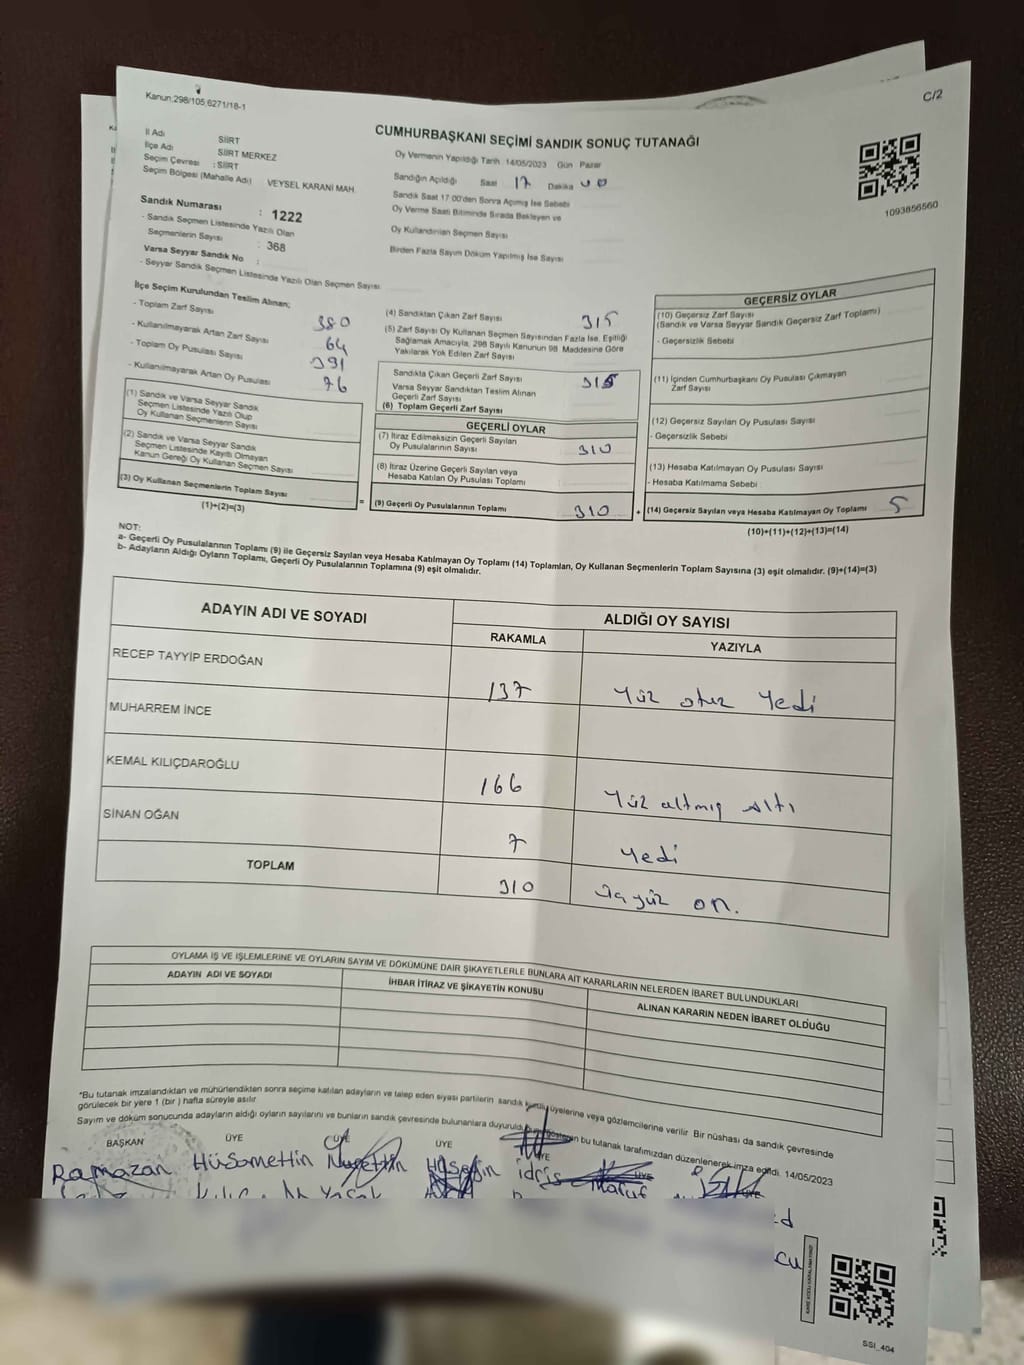 C/2
Kanun;298/105;6271/18-1
CUMHURBAŞKANI SEÇİMİ SANDIK SONUÇ TUTANAĞI
1093856560
İl Adı SİİRT
İlçe Adı SİİRT MERKEZ
Seçim Çevresi : SİİRT
Seçim Bölgesi (Mahalle Adı) VEYSEL KARANİ MAH.
Sandık Numarası : 1222
- Sandık Seçmen Listesinde Yazılı Olan
Seçmenlerin Sayısı : 368
Varsa Seyyar Sandık No :
- Seyyar Sandık Seçmen Listesinde Yazılı Olan Seçmen Sayısı
Oy Vermenin Yapıldığı Tarih 14/05/2023 Gün Pazar
Sandığın Açıldığı Saat 17 Dakika 00
Sandık Saat 17:00'den Sonra Açılmış İse Sebebi
Oy Verme Saati Bitiminde Sırada Bekleyen ve
Oy Kullandırılan Seçmen Sayısı
Birden Fazla Sayım Döküm Yapılmış İse Sayısı
İlçe Seçim Kurulundan Teslim Alınan;
- Toplam Zarf Sayısı 380
- Kullanılmayarak Artan Zarf Sayısı 64
- Toplam Oy Pusulası Sayısı 391
- Kullanılmayarak Artan Oy Pusulası 76
(1) Sandık ve Varsa Seyyar Sandık
Seçmen Listesinde Yazılı Olup
Oy Kullanan Seçmenlerin Sayısı
(2) Sandık ve Varsa Seyyar Sandık
Seçmen Listesinde Kayıtlı Olmayan
Kanun Gereği Oy Kullanan Seçmen Sayısı
(3) Oy Kullanan Seçmenlerin Toplam Sayısı
(1)+(2)=(3)
(4) Sandıktan Çıkan Zarf Sayısı 315
(5) Zarf Sayısı Oy Kullanan Seçmen Sayısından Fazla İse, Eşitliği
Sağlamak Amacıyla, 298 Sayılı Kanunun 98. Maddesine Göre
Yakılarak Yok Edilen Zarf Sayısı
Sandıkta Çıkan Geçerli Zarf Sayısı 315
Varsa Seyyar Sandıktan Teslim Alınan
Geçerli Zarf Sayısı
(6) Toplam Geçerli Zarf Sayısı
GEÇERLİ OYLAR
(7) İtiraz Edilmeksizin Geçerli Sayılan
Oy Pusulalarının Sayısı 310
(8) İtiraz Üzerine Geçerli Sayılan veya
Hesaba Katılan Oy Pusulası Toplamı
= (9) Geçerli Oy Pusulalarının Toplamı 310
GEÇERSİZ OYLAR
(10) Geçersiz Zarf Sayısı
(Sandık ve Varsa Seyyar Sandık Geçersiz Zarf Toplamı)
- Geçersizlik Sebebi
(11) İçinden Cumhurbaşkanı Oy Pusulası Çıkmayan
Zarf Sayısı
(12) Geçersiz Sayılan Oy Pusulası Sayısı
- Geçersizlik Sebebi
(13) Hesaba Katılmayan Oy Pusulası Sayısı
- Hesaba Katılmama Sebebi
+ (14) Geçersiz Sayılan veya Hesaba Katılmayan Oy Toplamı 5
(10)+(11)+(12)+(13)=(14)
NOT:
a- Geçerli Oy Pusulalarının Toplamı (9) ile Geçersiz Sayılan veya Hesaba Katılmayan Oy Toplamı (14) Toplamları, Oy Kullanan Seçmenlerin Toplam Sayısına (3) eşit olmalıdır. (9)+(14)=(3)
b- Adayların Aldığı Oyların Toplamı, Geçerli Oy Pusulalarının Toplamına (9) eşit olmalıdır.
ADAYIN ADI VE SOYADI ALDIĞI OY SAYISI
RAKAMLA YAZIYLA
RECEP TAYYİP ERDOĞAN 137 Yüz otuz Yedi
MUHARREM İNCE
KEMAL KILIÇDAROĞLU 166 Yüz altmış altı
SİNAN OĞAN 7 Yedi
TOPLAM 310 üçyüz on.
OYLAMA İŞ VE İŞLEMLERİNE VE OYLARIN SAYIM VE DÖKÜMÜNE DAİR ŞİKAYETLERLE BUNLARA AİT KARARLARIN NELERDEN İBARET BULUNDUKLARI
ADAYIN ADI VE SOYADI İHBAR İTİRAZ VE ŞİKAYETİN KONUSU ALINAN KARARIN NEDEN İBARET OLDUĞU
*Bu tutanak imzalandıktan ve mühürlendikten sonra seçime katılan adayların ve talep eden siyasi partilerin sandık kurulu üyelerine veya gözlemcilerine verilir. Bir nüshası da sandık çevresinde
görülecek bir yere 1 (bir ) hafta süreyle asılır.
Sayım ve döküm sonucunda adayların aldığı oyların sayılarını ve bunların sandık çevresinde bulunanlara duyurulduğunu gösteren bu tutanak tarafımızdan düzenlenerek imza edildi. 14/05/2023
BAŞKAN ÜYE ÜYE ÜYE ÜYE ÜYE ÜYE
Ramazan Hüsamettin Nurettin Hüseyin idris Maruf
SSI_404